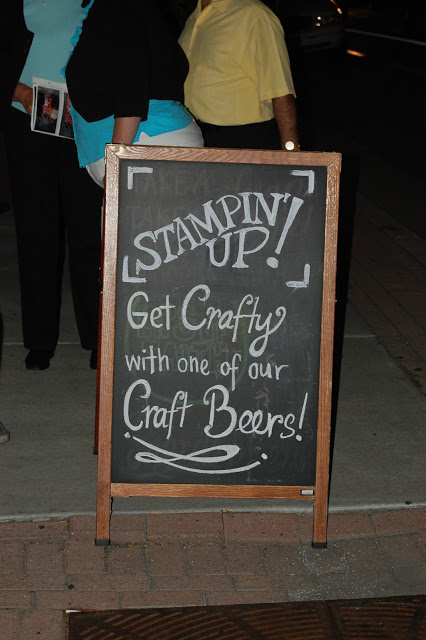 STAMPIN'
UP!
Get Crafty
with one of our
Craft Beers!